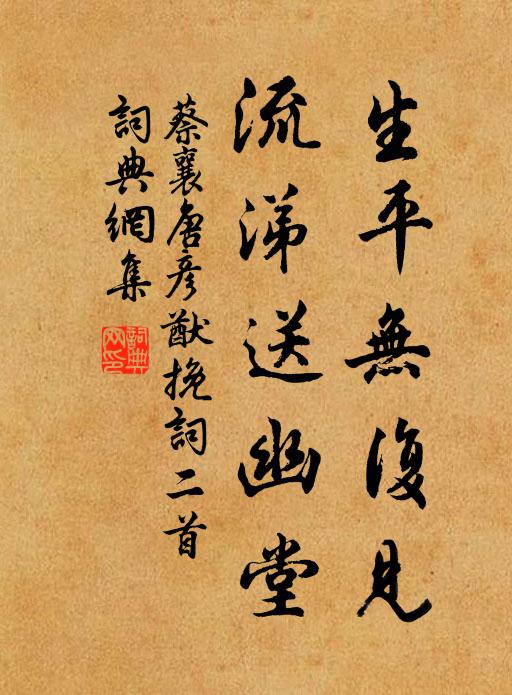 生平無復見
流涕送幽堂
蔡襄唐彥猷挽詞二首
詞典網集
詞典
网印